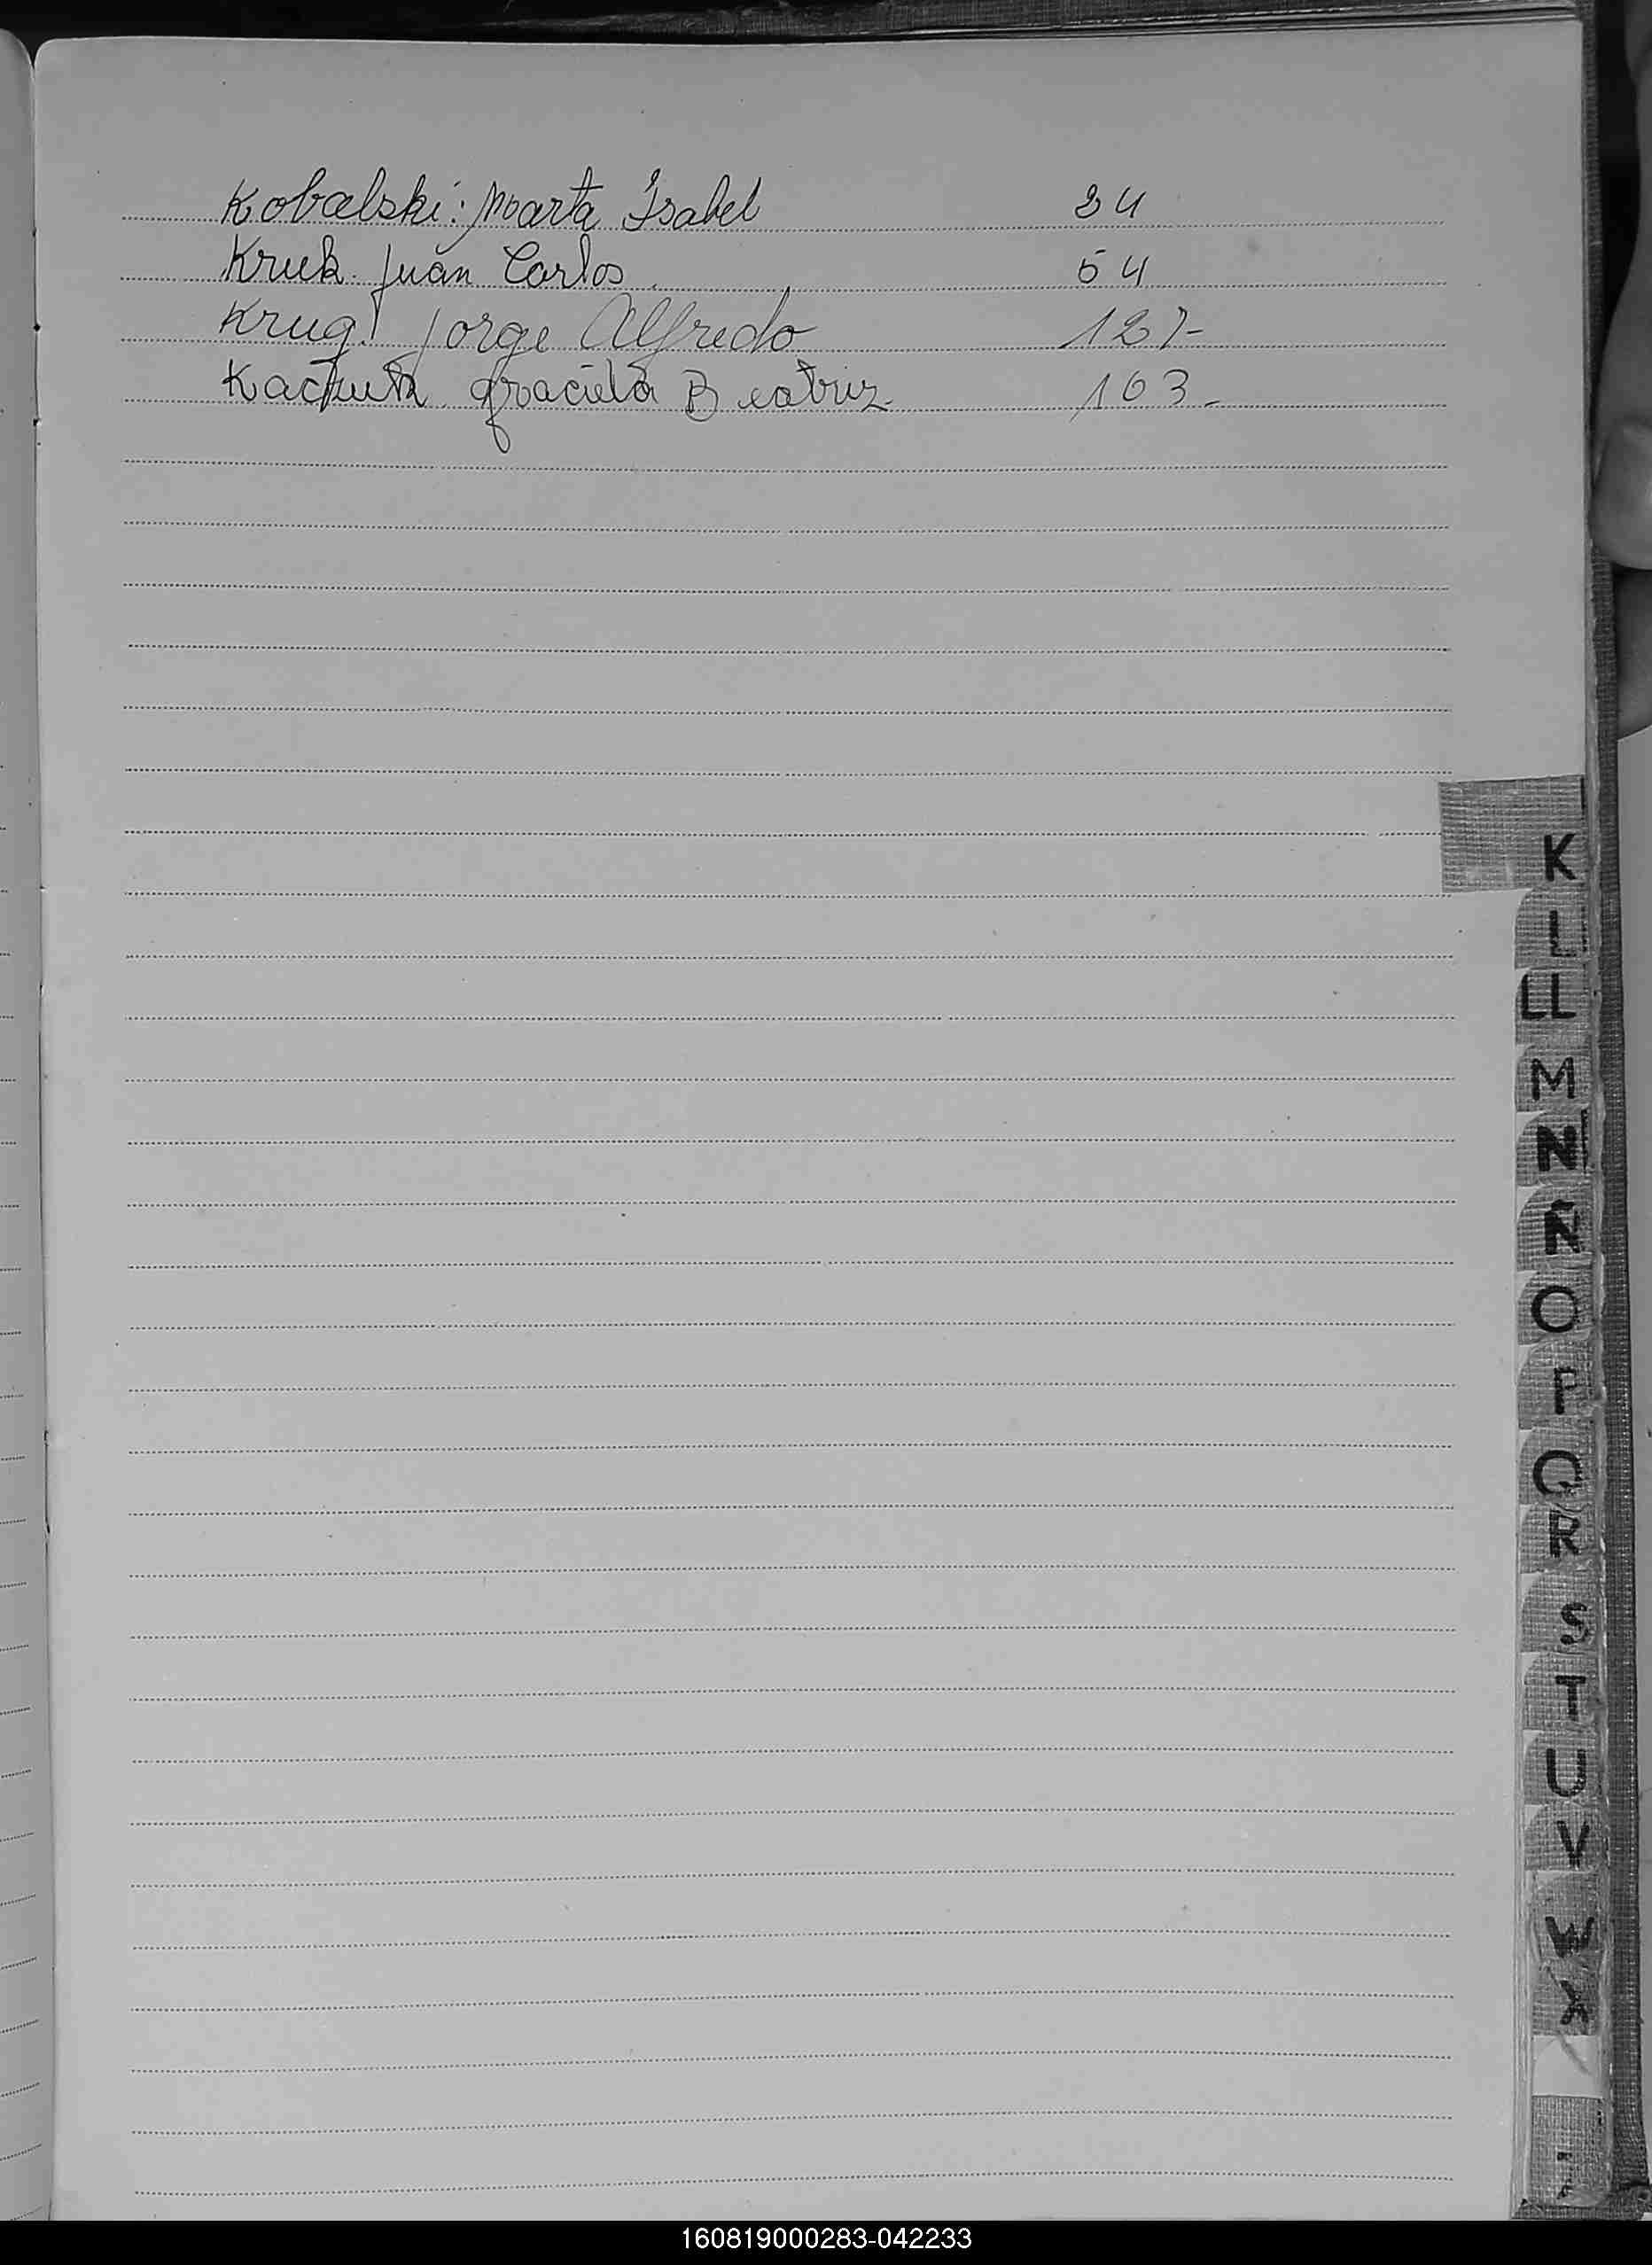 Kobalski: Marta Isabel 24
Kruk. Juan Carlos. 54
Krug. Jorge Alfredo 127-
Graciela Beatriz. 163-
K
L
LL
M
N
Ñ
O
P
Q
R
S
T
U
V
W
X
160819000283-042233